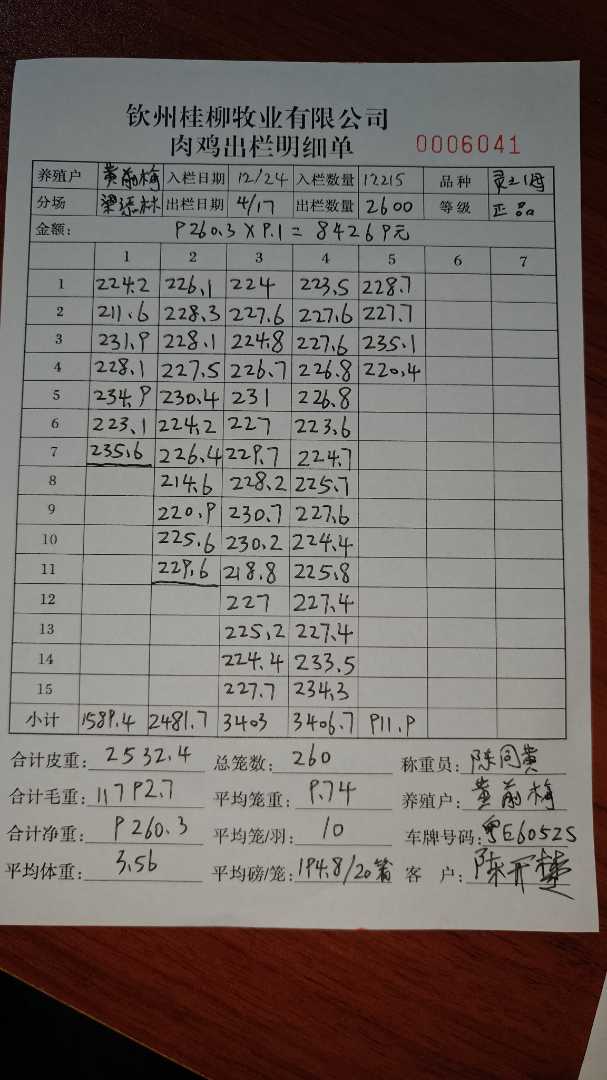 钦州桂柳牧业有限公司
肉鸡出栏明细单 0006041
养殖户 黄前梅 入栏日期 12/24 入栏数量 12215 品种 灵山母
分场 梁添林 出栏日期 4/17 出栏数量 2600 等级 正品
金额: 9260.3 X 9.1 = 84269元
1 2 3 4 5 6 7
1 224.2 226.1 224 223.5 228.7
2 211.6 228.3 227.6 227.6 227.7
3 231.9 228.1 224.8 227.6 235.1
4 228.1 227.5 226.7 226.8 220.4
5 234.9 230.4 231 226.8
6 223.1 224.2 227 223.6
7 235.6 226.4 229.7 224.7
8 214.6 228.2 225.7
9 220.9 230.7 227.6
10 225.6 230.2 224.4
11 229.6 218.8 225.8
12 227 227.4
13 225.2 227.4
14 224.4 233.5
15 227.7 234.3
小计 1589.4 2481.7 3403 3406.7 911.9
合计皮重: 2532.4 总笼数: 260 称重员: 陈同黄
合计毛重: 11792.7 平均笼重: 9.74 养殖户: 黄前梅
合计净重: 9260.3 平均笼/羽: 10 车牌号码: 粤E6052S
平均体重: 3.56 平均磅/笼: 194.8/20 客户: 陈开